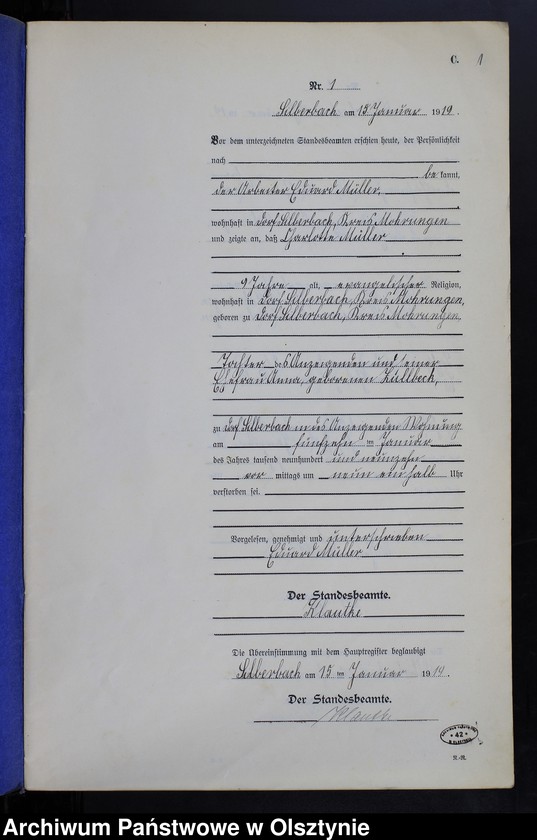 C. 1
Nr. 1
Silberbach am 15 Januar 1919.
Vor dem unterzeichneten Standesbeamten erschien heute, der Persönlichkeit
nach
bekannt,
der Arbeiter Eduard Müller,
wohnhaft in Dorf Silberbach, Kreis Mohrungen
und zeigte an, daß Charlotte Müller
9 Jahre alt, evangelischer Religion,
wohnhaft in Dorf Silberbach, Kreis Mohrungen,
geboren zu Dorf Silberbach, Kreis Mohrungen,
Tochter des Anzeigenden und seiner
Ehefrau Anna, geborenen
zu Dorf Silberbach in des Anzeigenden Wohnung
am fünfzehn ten Januar
des Jahres tausend neunhundert und neunzehn
vor mittags um neun ein halb Uhr
verstorben sei.
Vorgelesen, genehmigt und unterschrieben
Eduard Müller
Der Standesbeamte.
Klautke
Die Übereinstimmung mit dem Hauptregister beglaubigt
Silberbach am 15 ten Januar 1919.
Der Standesbeamte.
Klautke
42
Archiwum Państwowe w Olsztynie